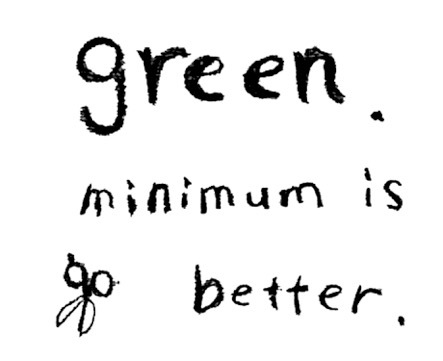 green.
minimum is
go better.